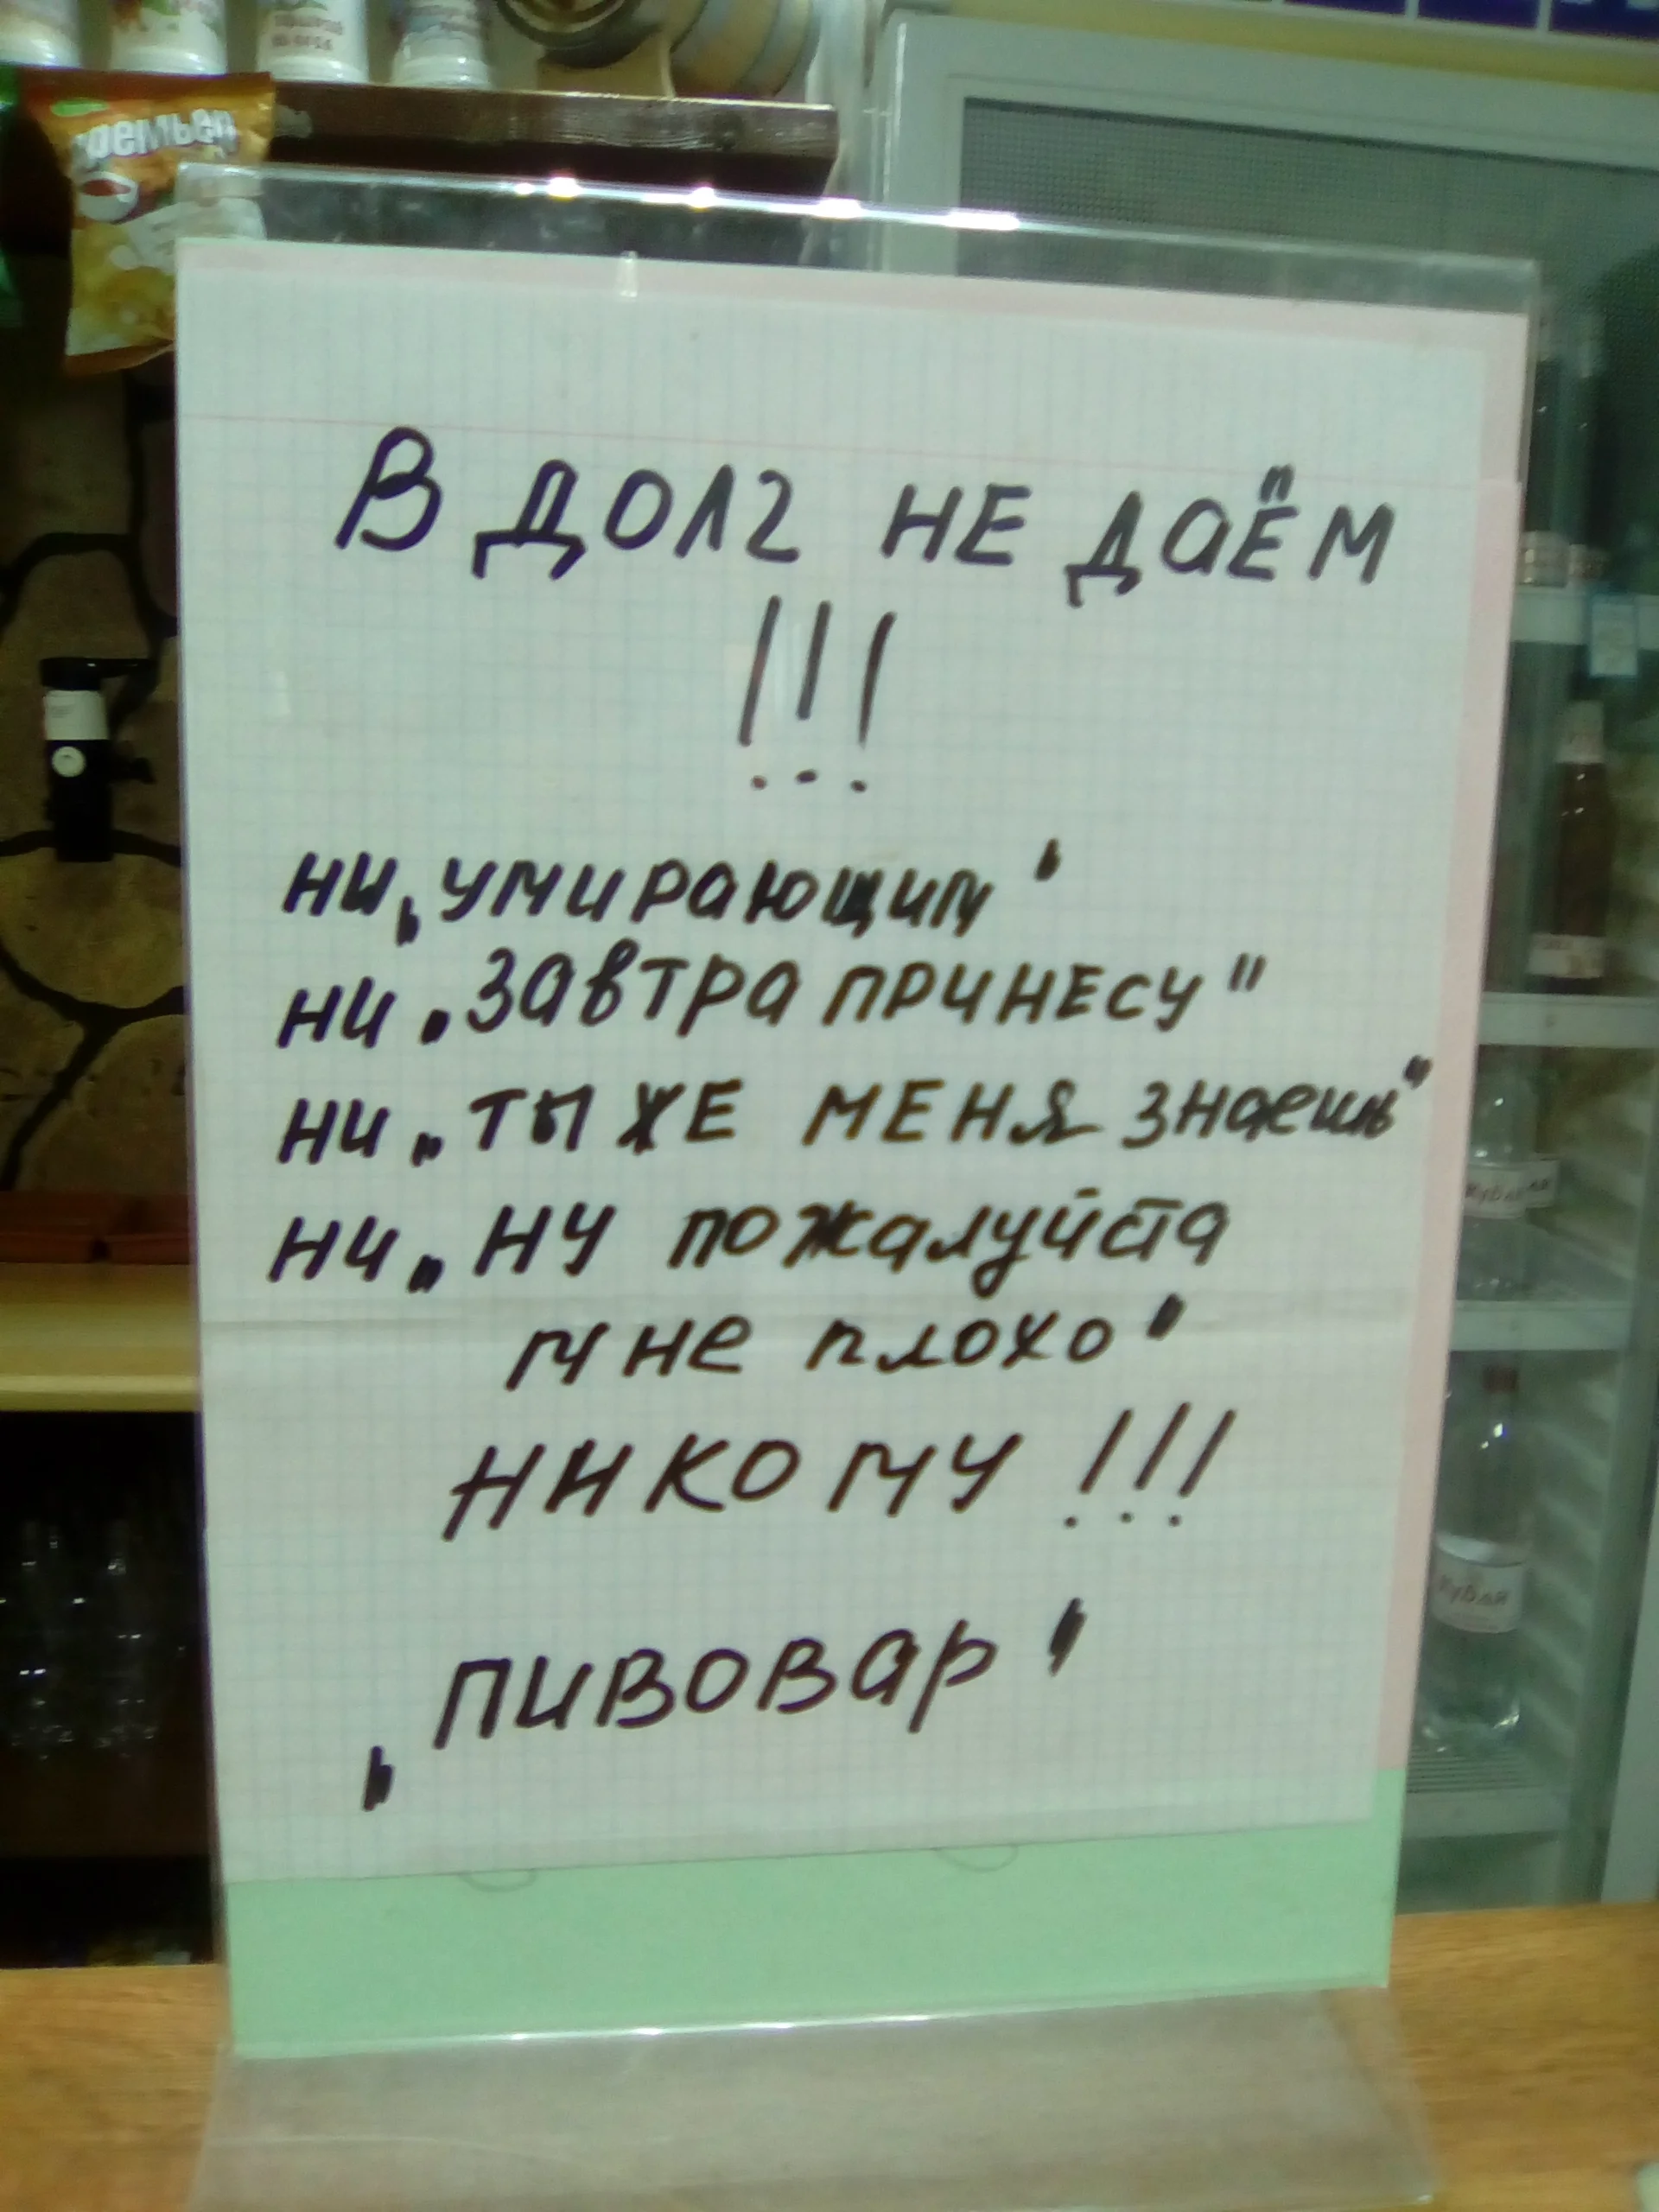 В ДОЛГ НЕ ДАЁМ
!!!
ни „умирающим"
ни „завтра принесу"
ни „ты же меня знаешь"
ни „ну пожалуйста
мне плохо"
никому !!!
„Пивовар"